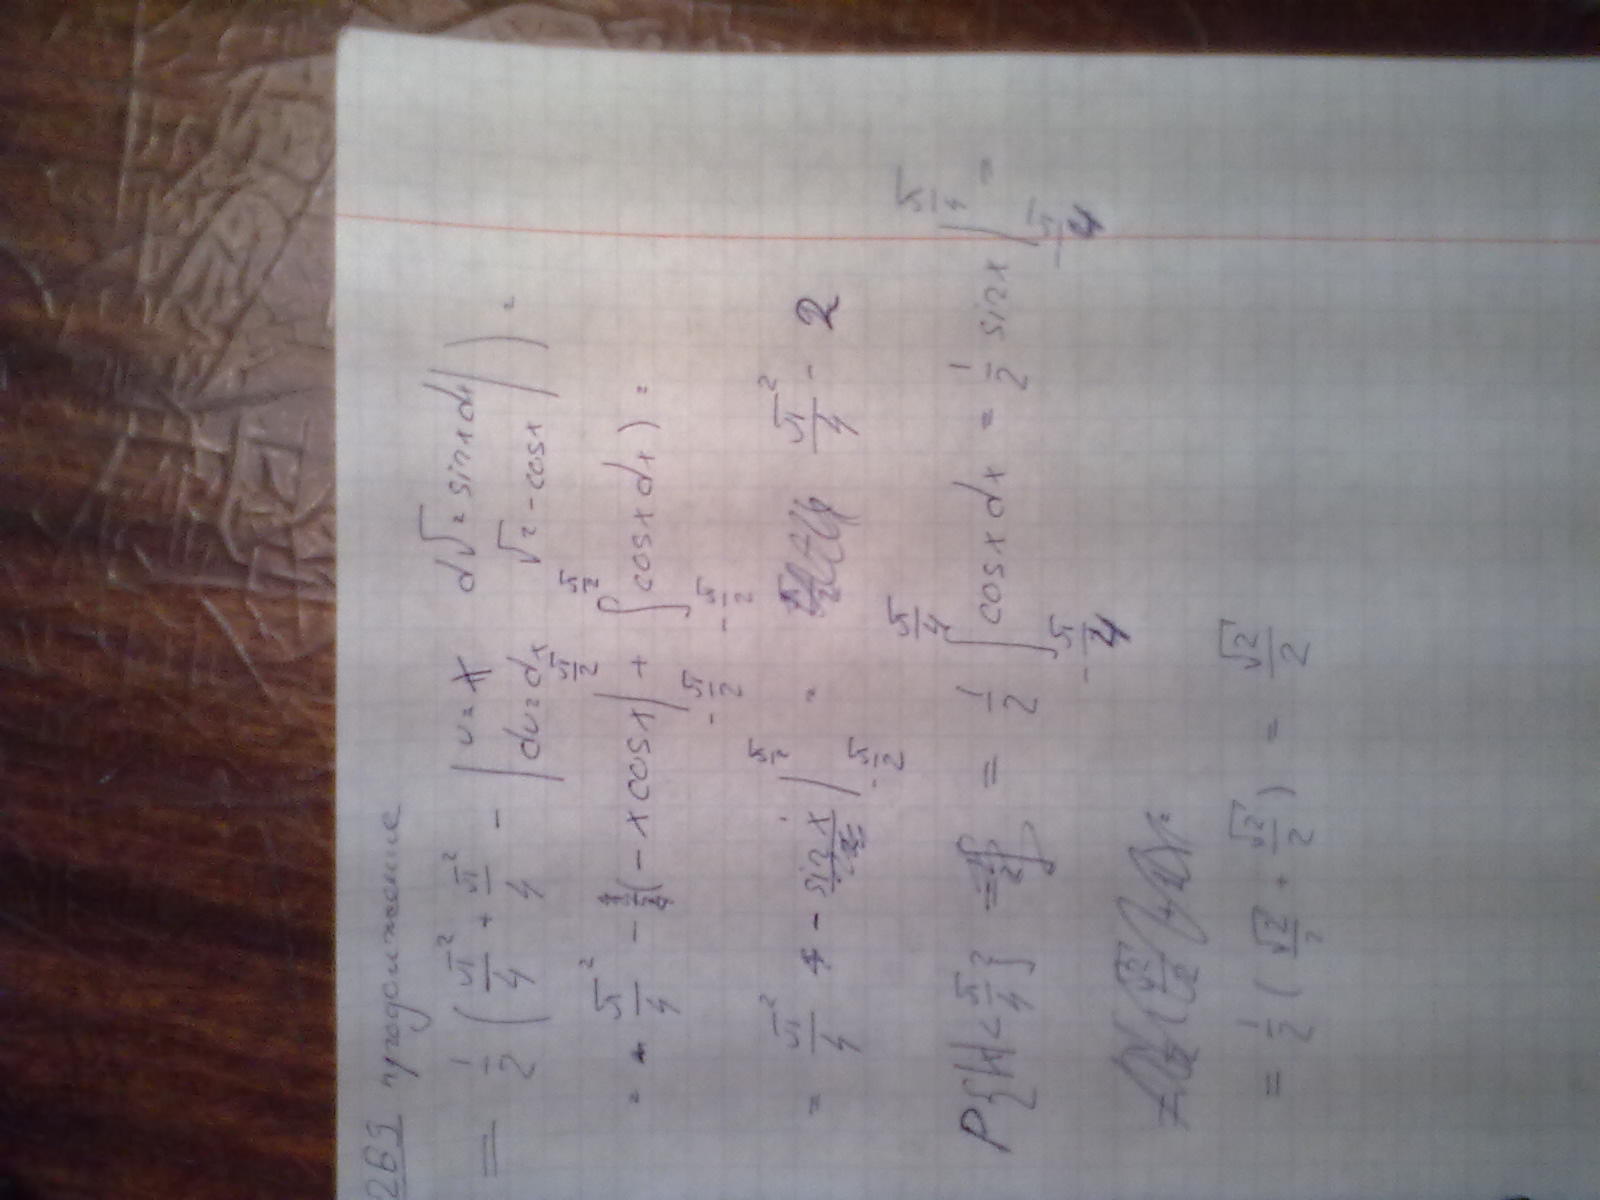 2В5 продолжение
= 1/2 (π²/4 + π²/4 - | u = x dv = sinx dx
du = dx v = -cosx | ) =
= π²/4 - (-x cosx |_{-π/2}^{π/2} + ∫_{-π/2}^{π/2} cosx dx) =
= π²/4 - sinx |_{-π/2}^{π/2} = π²/4 - 2
P{|x|<π/4} = 1/2 ∫_{-π/4}^{π/4} cosx dx = 1/2 sinx |_{-π/4}^{π/4} =
= 1/2 (√2/2 + √2/2) = √2/2